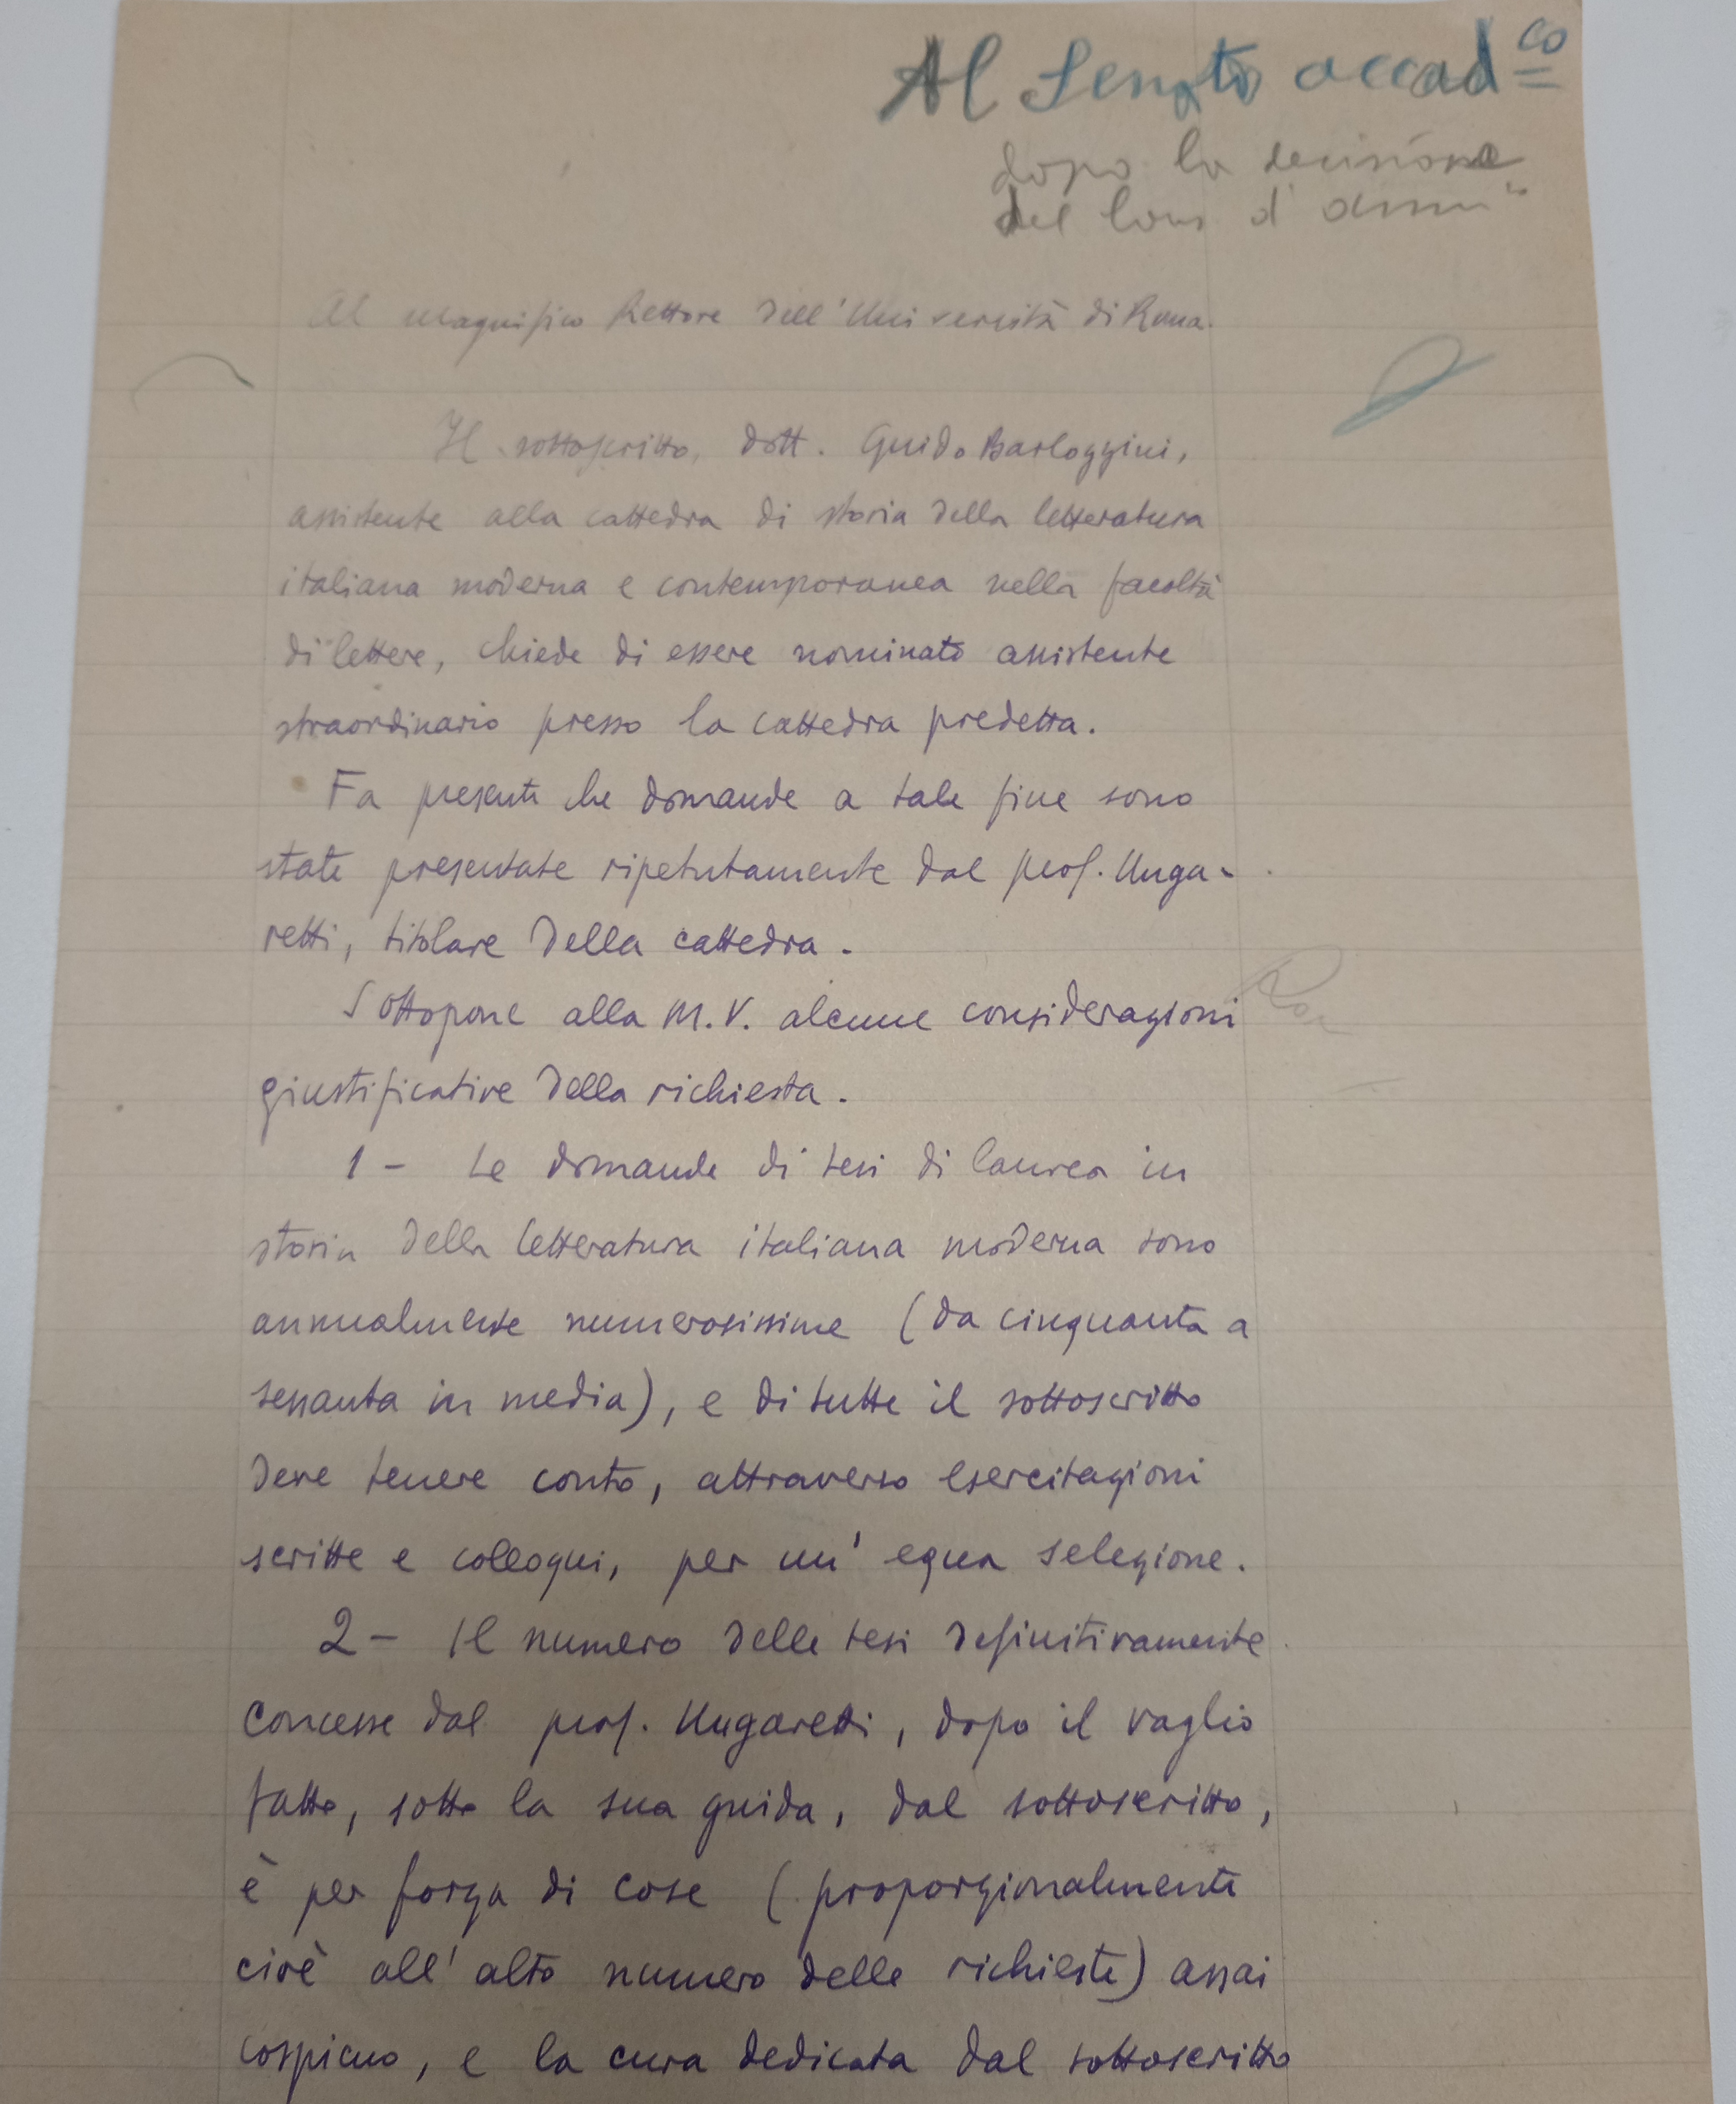 Al Senato accad.co
dopo la decisione
del Cons d'ammne
Al magnifico Rettore dell'Università di Roma.
Il sottoscritto, dott. Guido Barloggini,
assistente alla cattedra di storia della letteratura
italiana moderna e contemporanea nella facoltà
di lettere, chiede di essere nominato assistente
straordinario presso la cattedra predetta.
Fa presente che domande a tale fine sono
state presentate ripetutamente dal prof. Unga-
retti, titolare della cattedra.
Sottopone alla M.V. alcune considerazioni
giustificative della richiesta.
1 - Le domande di tesi di laurea in
storia della letteratura italiana moderna sono
annualmente numerosissime (da cinquanta a
sessanta in media), e di tutte il sottoscritto
deve tenere conto, attraverso esercitazioni
scritte e colloqui, per un' equa selezione.
2 - Il numero delle tesi definitivamente
concesse dal prof. Ungaretti, dopo il vaglio
fatto, sotto la sua guida, dal sottoscritto,
è per forza di cose (proporzionalmente
cioè all'alto numero delle richieste) assai
cospicuo, e la cura dedicata dal sottoscritto